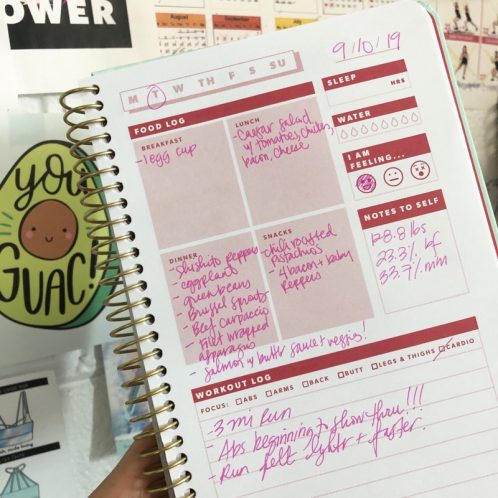 OWER
August
September
you
GUAC!
9/10/19
M T W TH F S SU
FOOD LOG
BREAKFAST
-1 egg cup
LUNCH
-Caesar salad
w/ tomatoes, chicken,
bacon, cheese
DINNER
-Shishito peppers
-eggplants
-green beans
-Brussel sprouts
-Beef Carpaccio
-filet wrapped
asparagus
-Salmon w/ buttr sauce + veggies!
SNACKS
-chili roasted
pistachios
-4 bacon + baby
peppers
SLEEP
HRS
WATER
I AM
FEELING...
NOTES TO SELF
128.8 lbs
23.3% bf
33.7% mm
WORKOUT LOG
FOCUS: ABS ARMS BACK BUTT LEGS & THIGHS CARDIO
-3 mi run
-Abs beginning to show thru!!!
-Run felt lighter + faster!